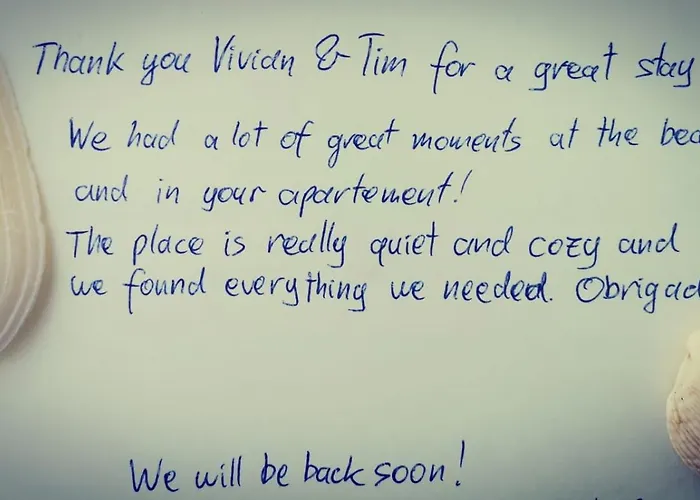 Thank you Vivian & Tim for a great stay
We had a lot of great moments at the bea
and in your apartement!
The place is really quiet and cozy and
we found everything we needed. Obrigad
We will be back soon!